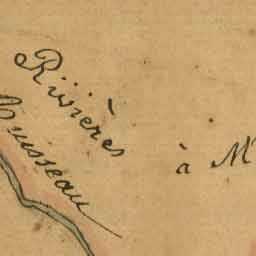 Rivières
Ruisseau
à M